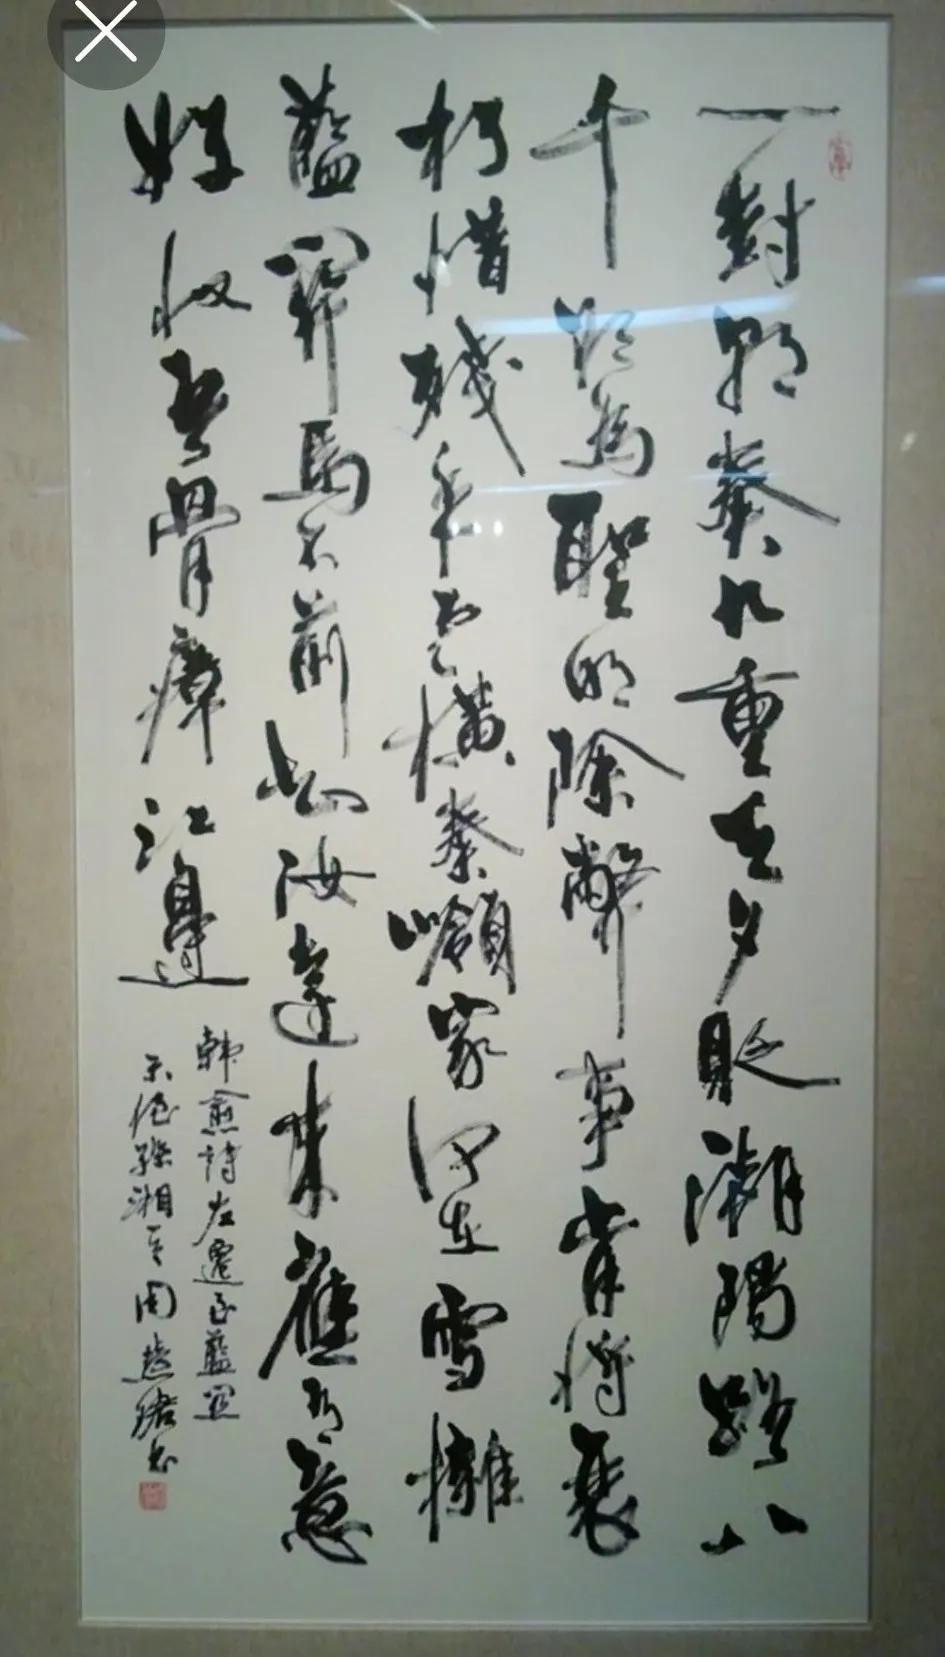 一對朝奏九重天夕貶潮陽路八
千欲為聖明除弊事肯將衰
朽惜殘年雲橫秦嶺家何在雪擁
藍關馬不前知汝遠來應有意
好收吾骨瘴江邊
韓愈詩左遷至藍關
示侄孫湘 周